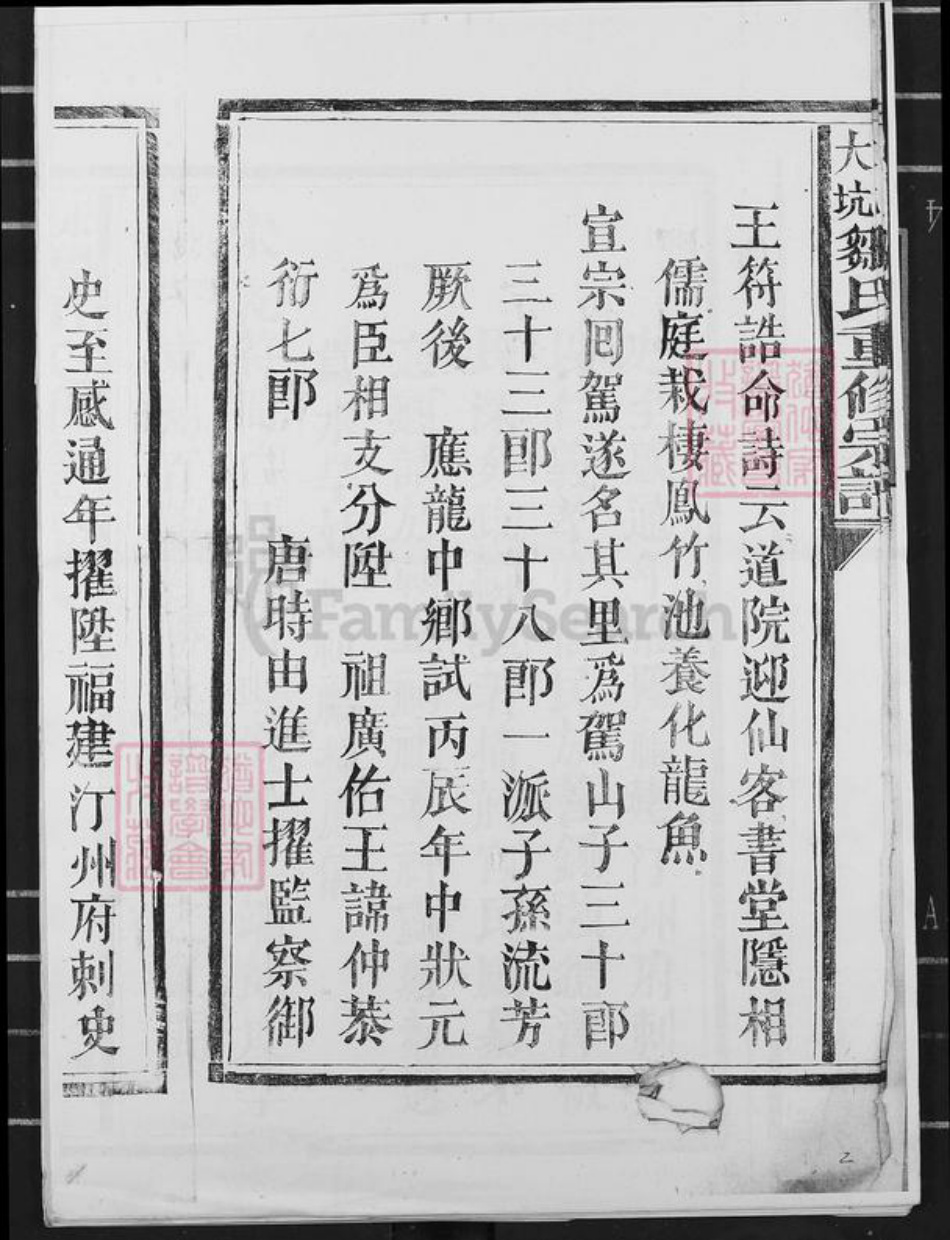 大坑鄒氏重修宗譜
王符誥命詩云道院迎仙客書堂隱相
儒庭栽棲鳳竹池養化龍魚
宣宗囘駕遂名其里爲駕山子三十郎
三十三郎三十八郎一派子孫流芳
厥後 應龍中鄉試丙辰年中狀元
爲臣相支分陞 祖廣佑王諱仲恭
衍七郎 唐時由進士擢監察御
史至感通年擢陞福建汀州府刺史
FamilySearch
2
4
A